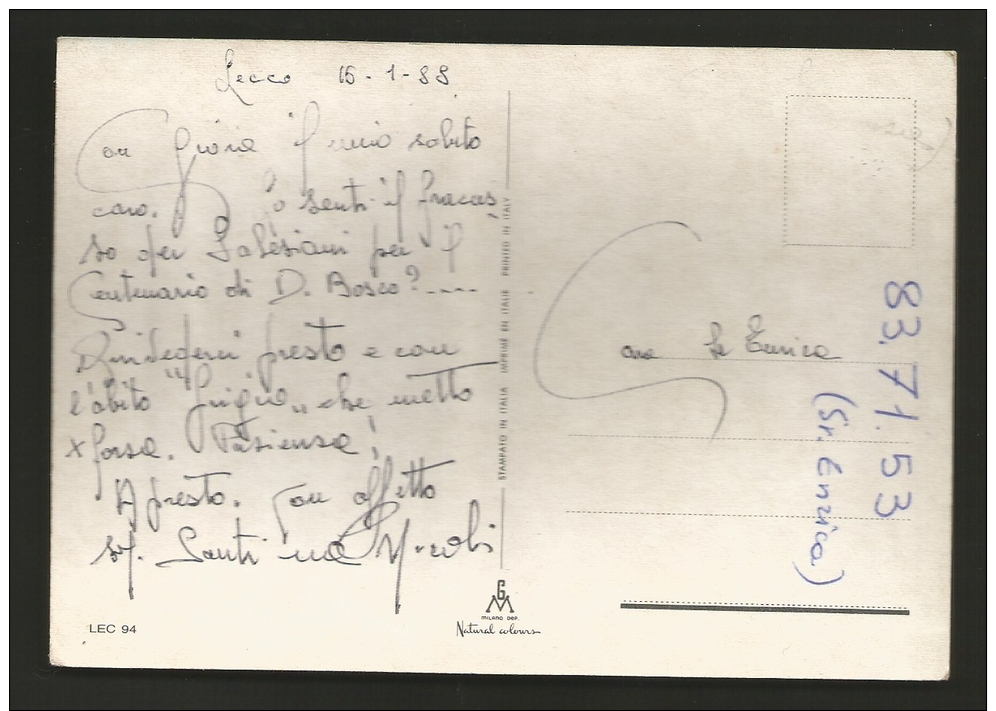 Lecco 16-1-89
Con gioia il mio saluto
caro. senti il fracas
so dei Salesiani per il
Centenario di D. Bosco?....
presto e con
l'abito "grigio" che metto
x forza. Pazienza!
A presto. Con affetto
sr. Santina
LEC 94
STAMPATO IN ITALIA IMPRIMÉ EN ITALIE PRINTED IN ITALY
GM
MILANO DEP.
Natural colours
Cara Sr Enrica
83.71.53
(Sr. Enrica)